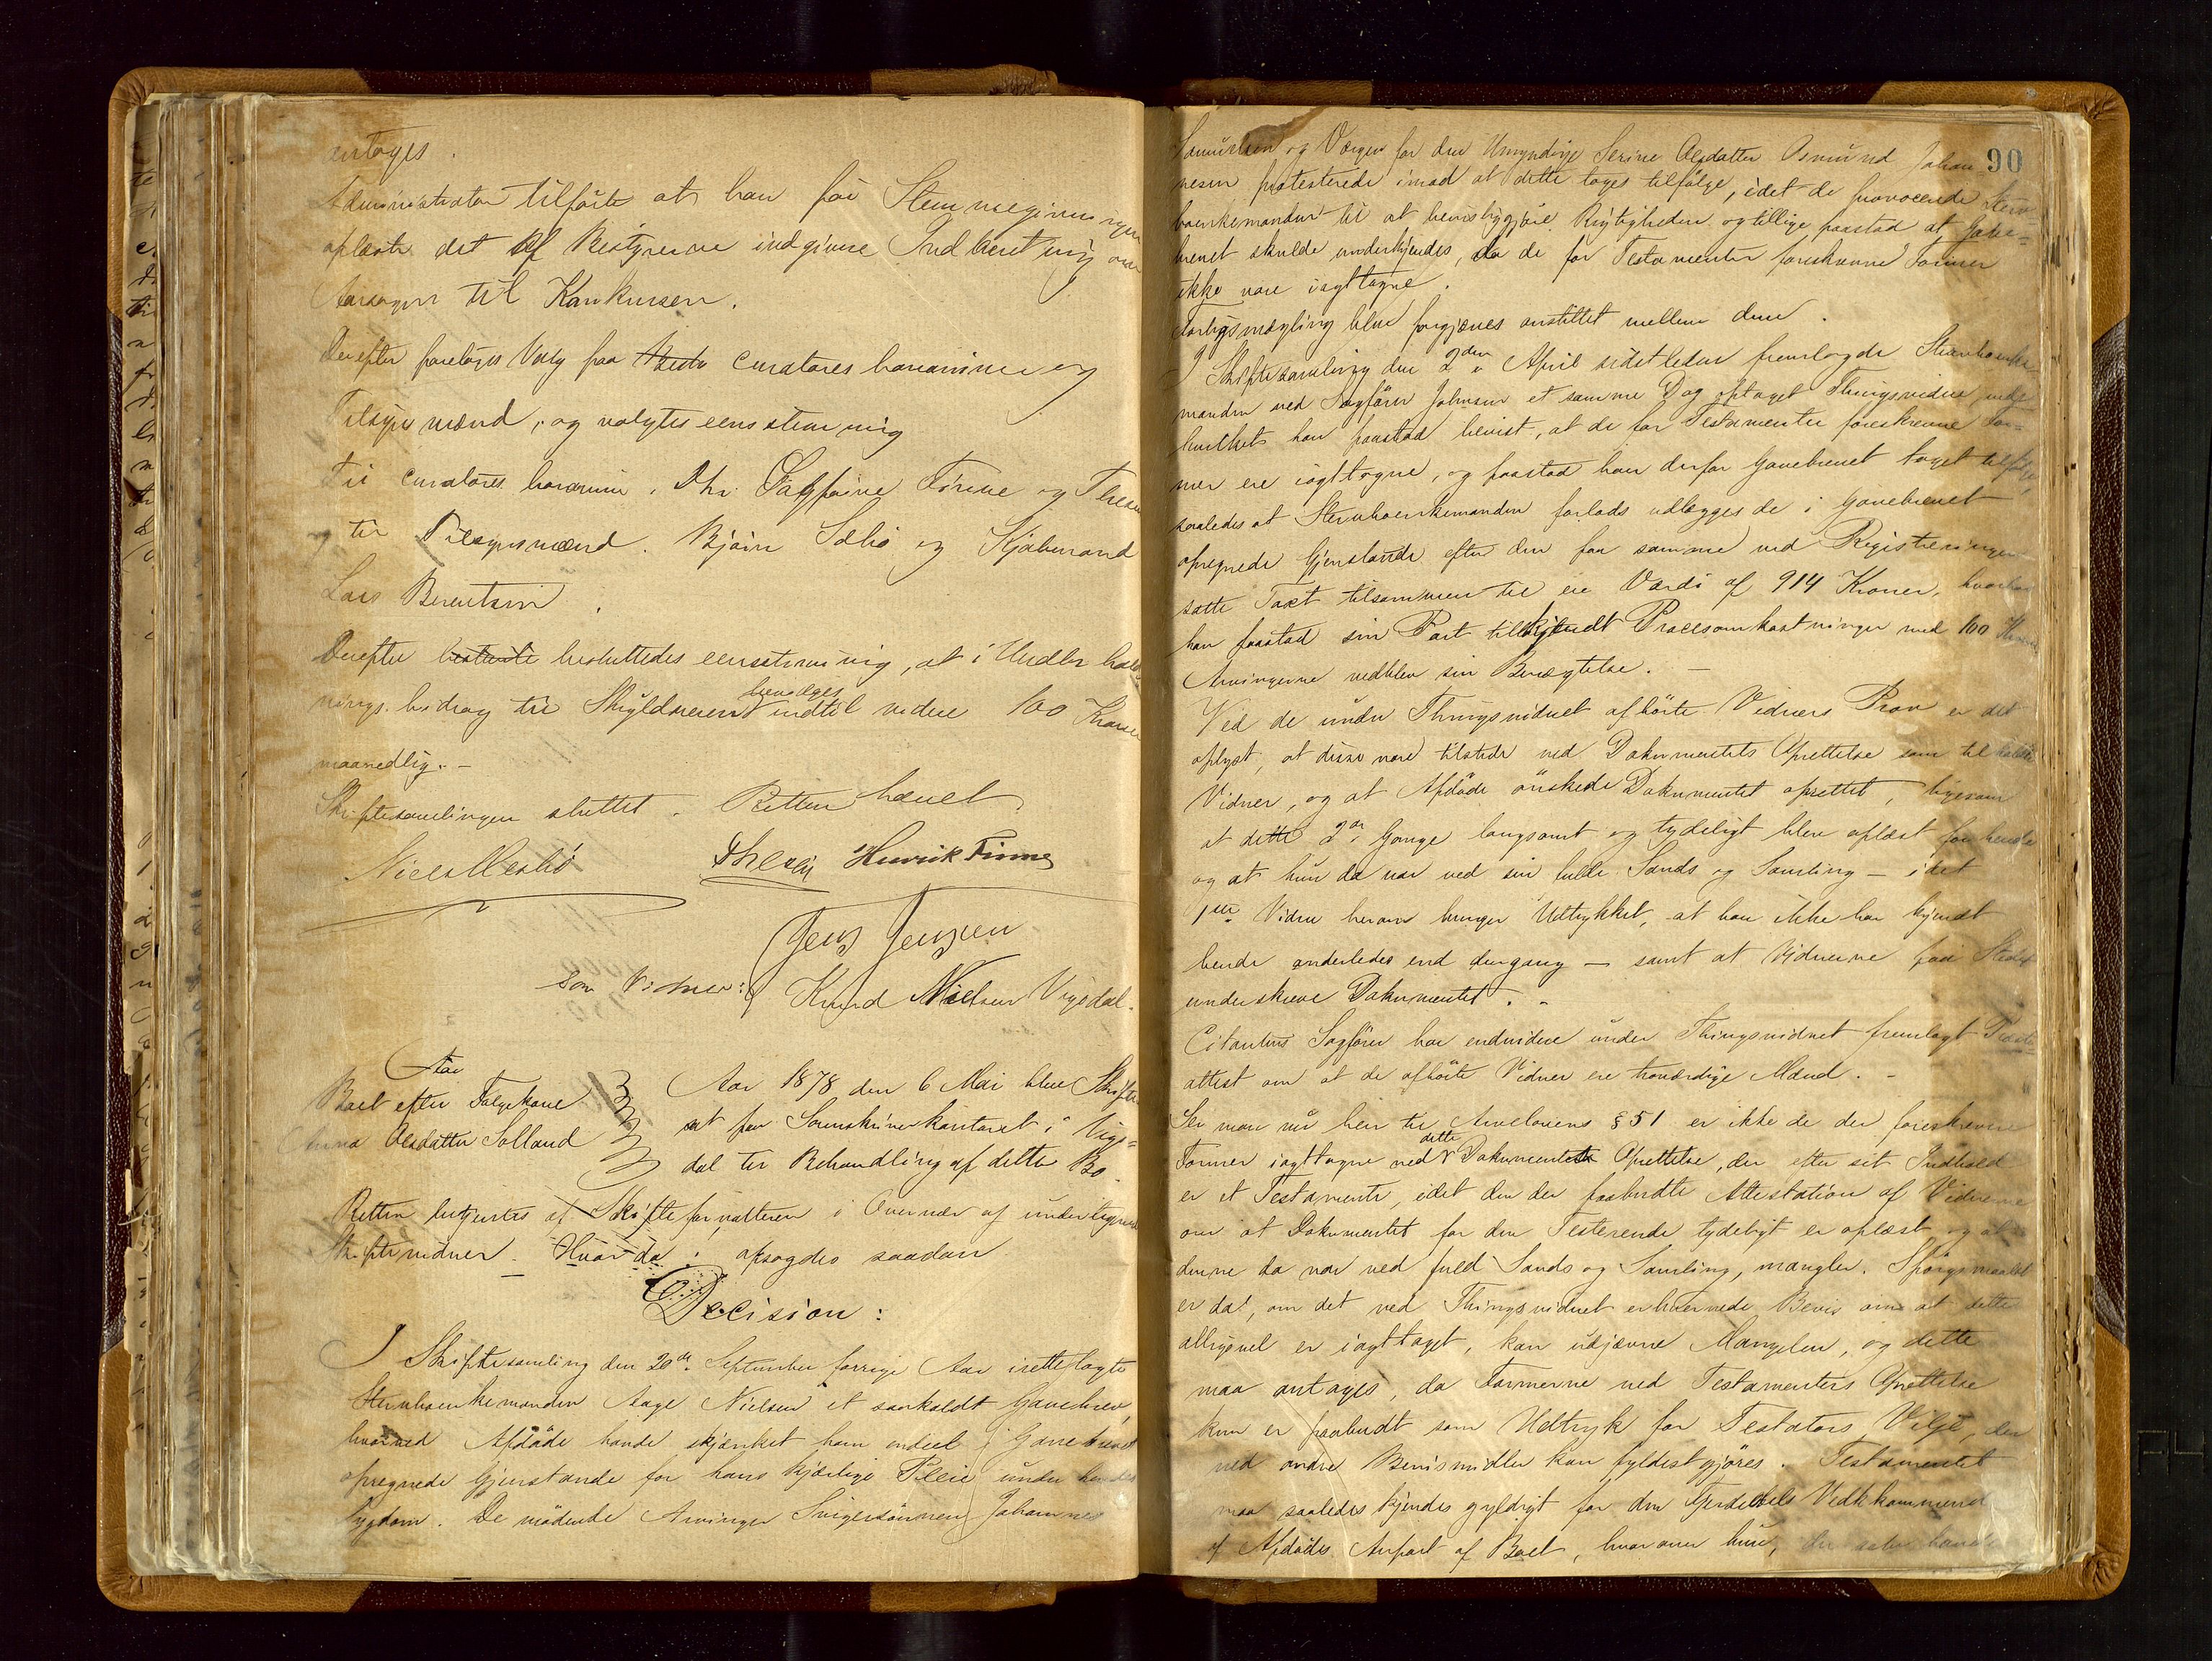 antages.
Administrator tilførte at han før Stemmegivningen
oplæste det af Bestyrerne indgivne Indberetning over
Aarsagen til Konkursen.
Derefter foretoges Valg paa curatores bonorum og
Tilsynsmænd, og valgtes eensstemmig
til curatores bonorum. Dhr. Sagfører Finne og
og til Tilsynsmænd. Bjørn Sælid og Kjøbmand
Lars Berentsen.
Derefter bestemte besluttedes eensstemmig, at i Underhold
nings bidrag til Skyldneren bevilges indtil videre 100 Kroner
maanedlig. -
Skiftesamlingen sluttet. Retten hævet.
Niels Henrik Finne
Jens Jensen
Som Vidner: Knud Nielsen Vigedal.
Aar
Boet efter Folgekone
Anna Olsdatter Solland
Aar 1878 den 6 Mai blev Skifte
ret paa Sorenskriverkontoret i Vige=
dal til Behandling af dette Bo.
Retten betjentes af Skifteforvalteren i Overvær af undertegnede
Skiftevidner. Hvorda: afsagdes saadan
Decision:
I Skiftesamling den 20de September forrige Aar irettelagte
Stervboenkemanden Aage Nielsen et saakaldt Gavebrev,
hvorved Afdøde havde skjænket ham endeel i Gavebrevet
opregnede Gjenstande for hans kjærlige Pleie under hendes
Sygdom. De mødende Arvinger Svigersønnen Johannes
90
Samuelsen og Værgen for den Umyndige Serine Olsdatter Osmund Johan
nesen protesterede imod at dette toges tilfølge, idet de provocerede Sterv
boenkemanden til at bevisliggjøre Rigtigheden og tillige paastod at Gave=
brevet skulde underkjendes, da de for Testamenter foreskrevne Former
ikke vare iagttagne.
Forligsmægling blev forgjæves anstillet mellem dem.
I Skiftesamling den 2den April sidstleden fremlagde Stervboenke
manden ved Sagfører Johnsen et samme Dag optaget Thingsvidne, ved
hvilket han paastod bevist, at de for Testamenter foreskrevne For=
mer ere iagttagne, og paastod han derfor Gavebrevet taget tilfølge,
saaledes at Stervboenkemanden forlods udlægges de i Gavebrevet
opregnede Gjenstande efter den paa samme ved Registreringen
satte Taxt tilsammen til en Værdi af 914 Kroner, hvorhos
han paastod sin Part tilkjendt Procesomkostninger med 100 Kroner
Arvingerne vedblev sin Benægtelse. -
Ved de under Thingsvidnet afhørte Vidners Prov er det
oplyst, at disse vare tilstede ved Dokumentets Oprettelse som tilkaldte
Vidner, og at Afdøde ønskede Dokumentet oprettet, ligesom
at dette 2de Gange langsomt og tydeligt blev oplæst for hende
og at hun da var ved sin fulde Sands og Samling - idet
1ste Vidne herom bruger Udtrykket, at han ikke har kjendt
hende anderledes end dengang - samt at Vidnerne paa Stedet
underskrev Dokumentet. -
Citantens Sagfører har endvidere under Thingsvidnet fremlagt
attest om at de afhørte Vidner ere troværdige Mænd. -
Ser man nu hen til Arvelovens § 51 er ikke de der foreskrevne
Former iagttagne ved dette Dokuments Oprettelse, der efter sit Indhold
er et Testamente, idet den der paabudte Attestation af Vidnerne
om at Dokumentet for den Testerende tydeligt er oplæst og at
denne da var ved fuld Sands og Samling, mangler. Spørgsmaalet
er da, om det ved Thingsvidnet erhvervede Bevis om at dette
alligevel er iagttaget, kan udjævne Mangelen, og dette
maa antages, da Formerne ved Testamenters Oprettelse
kun er paabudt som Udtryk for Testators Vilje, der
ved andre Bevismidler kan fyldestgjøres. Testamentet
maa saaledes kjendes gyldigt for den Vedkommende
af Afdødes Anpart af Boet, hvorover hun,